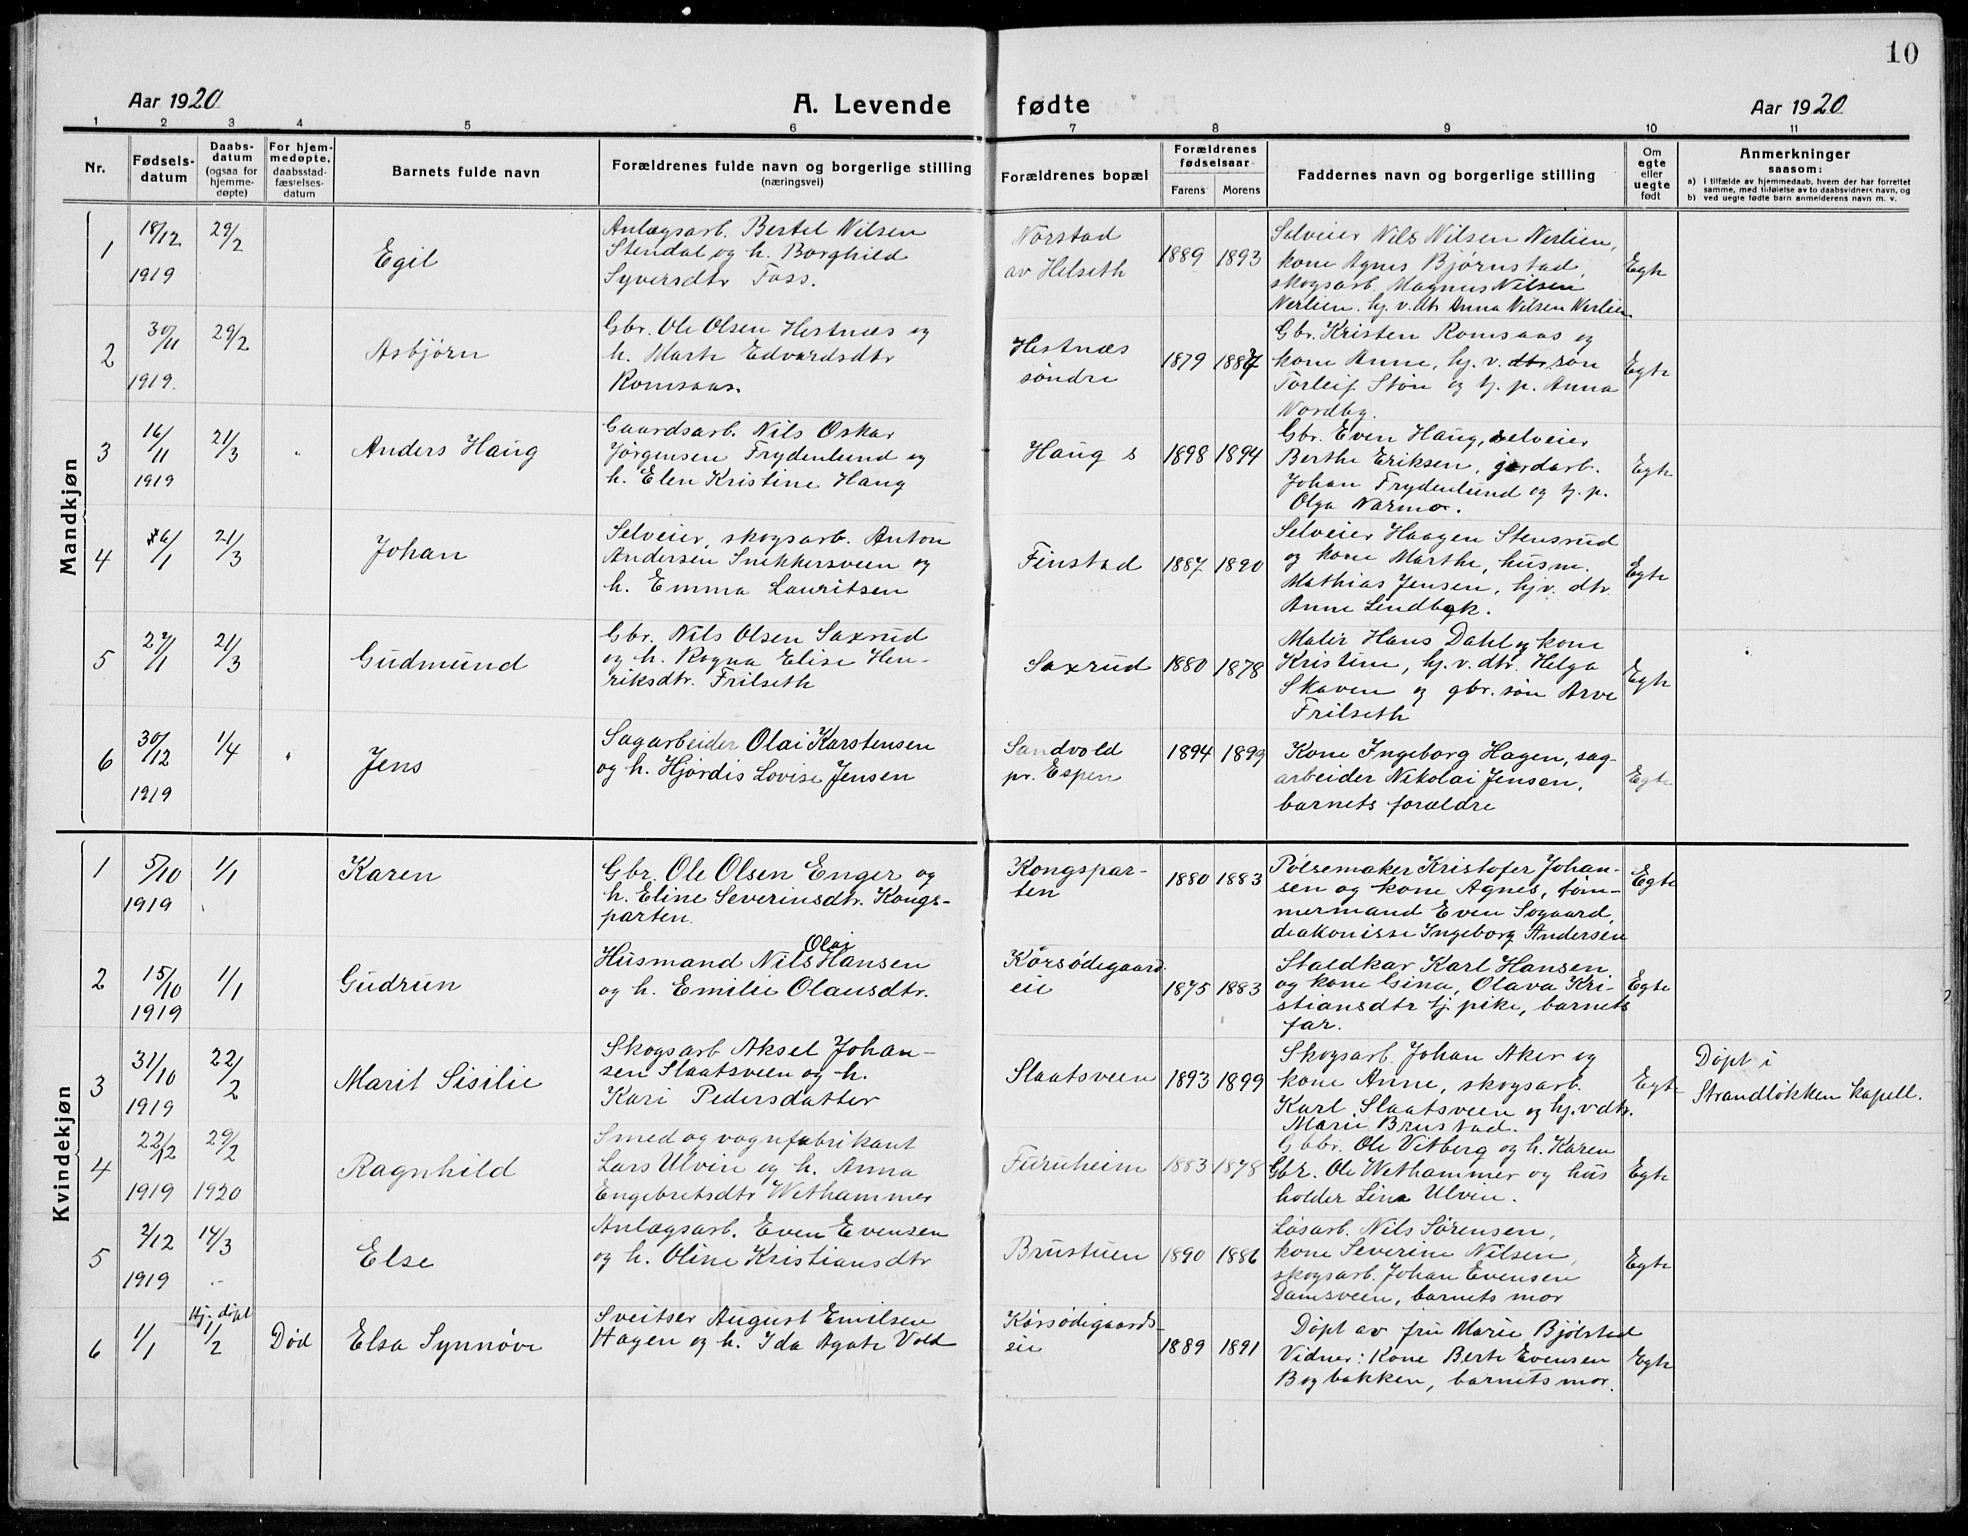 10
Aar 1920
A. Levende fødte
Aar 1920
1 2 3 4 5 6 7 8 9 10 11
Nr.
Fødsels-
datum
Daabs-
datum
(ogsaa for
hjemme-
døpte)
For hjem-
medøpte,
daabsstad-
fæstelses-
datum
Barnets fulde navn
Forældrenes fulde navn og borgerlige stilling
(næringsvei)
Forældrenes bopæl
Forældrenes
fødselsaar
Farens Morens
Faddernes navn og borgerlige stilling
Om
egte
eller
uegte
født
Anmerkninger
saasom:
a) I tilfælde av hjemmedaab, hvem der har forrettet
samme, med tilføielse av to daabsvidners navn, og
b) ved uegte fødte barn anmelderens navn m. v.
Mandkjøn
1
18/12
1919
29/2
Egil
Anlægsarb. Bertel Nilsen
Stendal og h. Borghild
Syversdtr Foss.
Nørstad
av Helseth
1889 1893
Selveier Nils Nilsen Nerlien,
kone Agnes Bjørnstad,
skogsarb. Magnus Nilsen
Nerlien. hj. v. dtr Anna Nilsen Nerlien
Egte
2
30/11
1919.
29/2
Asbjørn
Gbr. Ole Olsen Hestnæs og
h. Marte Edvardsdtr
Romsaas.
Hestnæs
søndre
1879 1887
Gbr. Kristen Romsaas og
kone Anne, hj. v. dtr søn
Torleif Støn og tj. p. Anna
Nordby.
Egte
3
16/11
1919
21/3
Anders Haug
Gaardsarb. Nils Oskar
Jørgensen Frydenlund og
h. Elen Kristine Haug
Haug s
1898 1894
Gbr. Even Haug, selveier
Berthe Eriksen, jordarb.
Johan Frydenlund og tj. p.
Olga Narmo.
Egte
4
6/1
21/3
Johan
Selveier, skogsarb. Anton
Andersen Snekkersveen og
h. Emma Lauritsen
Finstad
1887 1890
Selveier Haagen Stensrud
og kone Marthe, husm.
Mathias Jensen, hj.v. dtr.
Anne Lindbæk.
Egte
5
27/1
21/3
Gudmund
Gbr. Nils Olsen Saxrud
og h. Rogna Elise Hen-
riksdtr. Frilseth
Saxrud
1880 1878
Maler Hans Dahl og kone
Kristine, hj. v. dtr. Helga
Skaven og gbr. søn Arve
Frilseth
Egte
6
30/12
1919
1/4
Jens
Sagarbeider Olai Karstensen
og h. Hjørdis Lovise Jensen
Sandvold
pr. Espen
1894 1899
Kone Ingeborg Hagen, sag-
arbeider Nikolai Jensen,
barnets forældre
Egte
Kvindekjøn
1
5/10
1919
1/1
Karen
Gbr. Ole Olsen Enger og
h. Eline Severinsdtr. Kongs-
parten.
Kongspar-
ten
1880 1883
Pølsemaker Kristofer Johan-
sen og kone Agnes, tøm-
mermand Even Sogaard,
diakonisse Ingeborg Andersen
Egte
2
15/10
1919
1/1
Gudrun
Olai
Husmand Nils Hansen
og h. Emilie Olausdtr.
Korsødegaard
eie
1875 1883
Staldkar Karl Hansen
og kone Gina, Olava Kri-
stiansdtr tj. pike, barnets
far.
Egte
3
31/10
1919
22/2
Marit Sisilie
Skogsarb Aksel Johan-
sen Slaatsveen og h.
Kari Pedersdatter
Slaatsveen
1893 1899
Skogsarb. Johan Aker og
kone Anne, skogsarb.
Karl Slaatsveen og hj.v dtr.
Marie Brustad.
Egte
Døpt i
Strandløkken kapell.
4
22/12
1919
29/2
1920
Ragnhild
Smed og vognfabrikant
Lars Ulvin og h. Anna
Engebretsdtr Wethammer
Furuheim
1883 1878
Gbr. Ole Vitberg og h. Karen
Gbr. Ole Wethammer og hus
holder Lina Ulvin.
Egte
5
2/12
1919
14/3
Else
Anlægsarb. Even Evensen
og h. Oline Kristiansdtr
Brustuen
1890 1886
Løsarb. Nils Sørensen,
kone Severine Nilsen,
skogsarb. Johan Evensen
Damsveen, barnets mor
Egte
6
1/1
Hj. døpt
1/2
Død
Elsa Synnøve
Sveitser August Emilsen
Hagen og h. Ida Agate Vold
Korsødegaards-
eie
1889 1891
Døpt av fru Marie Bjølstad
Vidner: Kone Berte Evensen
Bogbakken, barnets mor.
Egte